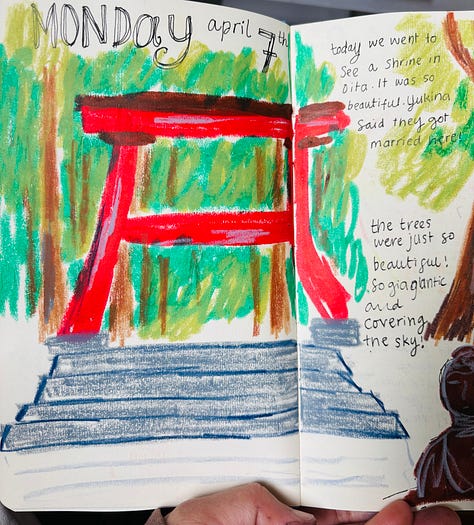 MONDay april 7th
today we went to
See a shrine in
Oita. It was so
beautiful. Yukina
Said they got
married here!
the trees
were just so
beautiful!
So giagantic
and
Covering
the sky!